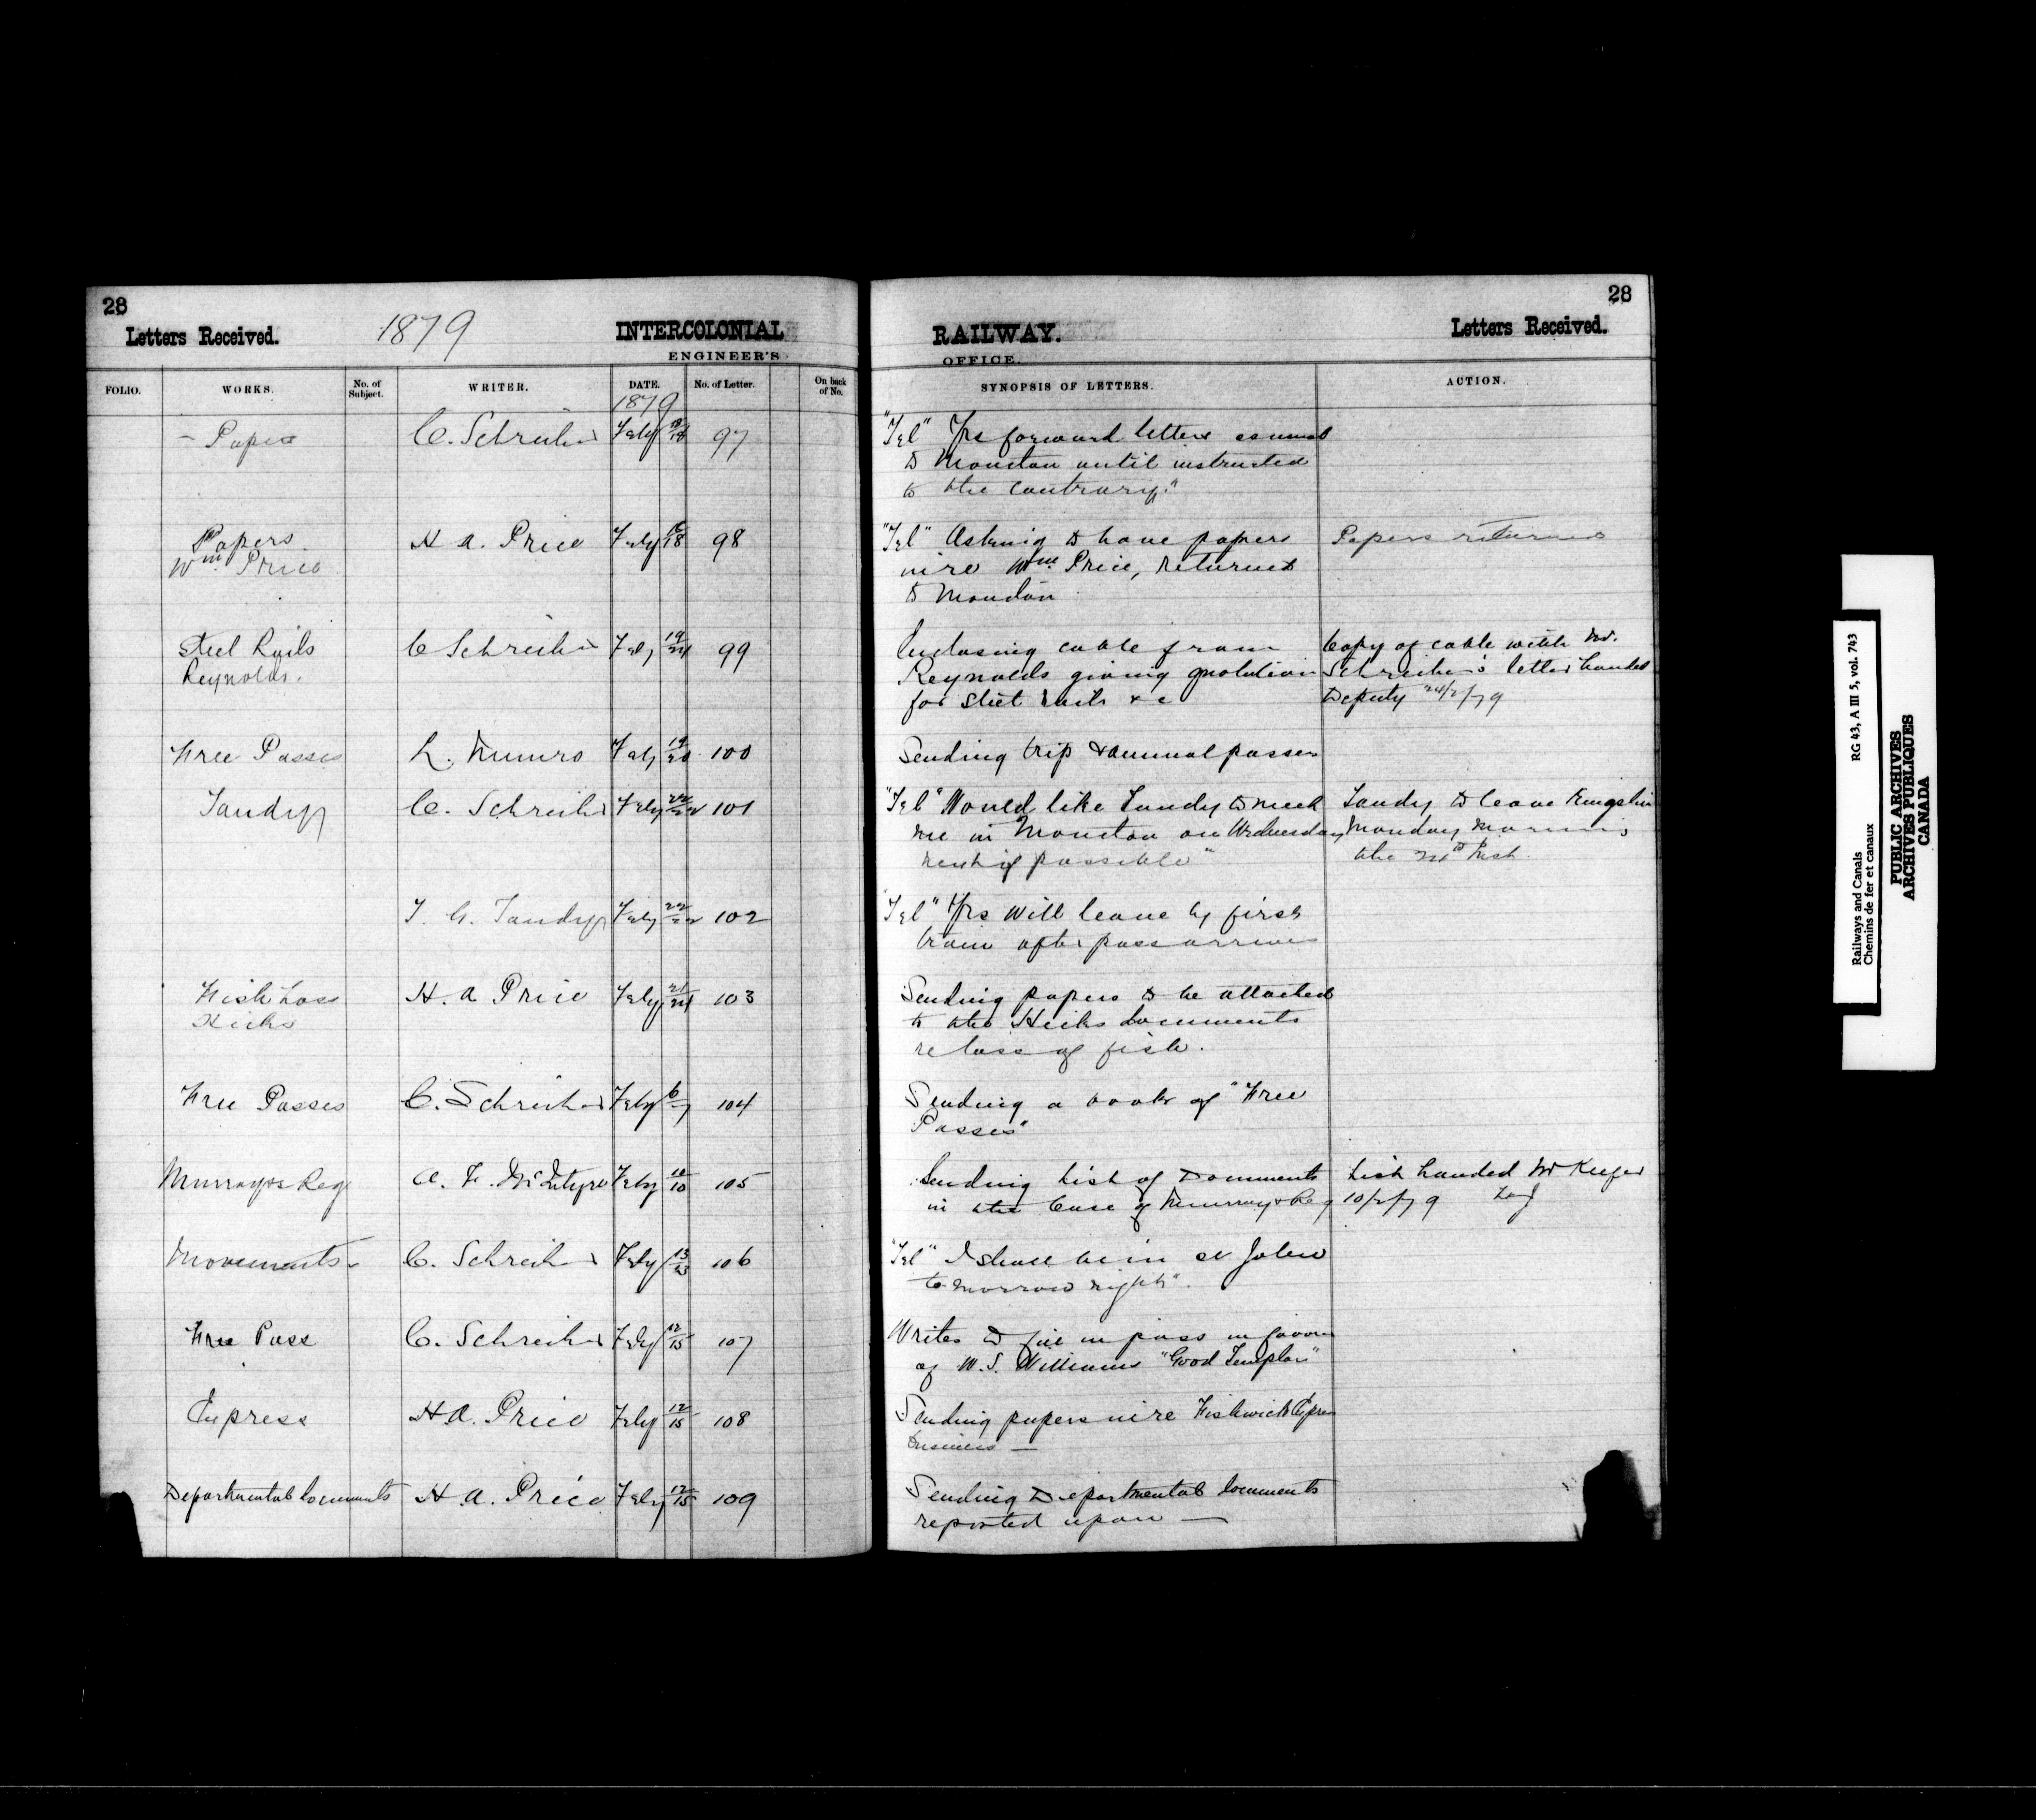 28
Letters Received.
1879
INTERCOLONIAL
ENGINEER'S
RAILWAY.
OFFICE.
Letters Received.
28
FOLIO. WORKS. No. of Subject. WRITER. DATE. No. of Letter. On back of No. SYNOPSIS OF LETTERS. ACTION.
1879
Papers C. Schreiber Feby 18/18 97 "Tel" Yrs forward letters as usual
to Moncton until instructed
to the contrary."
Papers H A. Price Feby 18 98 "Tel" Asking to have papers Papers returned
Wm Price in re Wm Price, returned
to Moncton
Steel Rails C Schreiber Feby 19/24 99 Enclosing cable from Copy of cable with Mr.
Reynolds. Reynolds giving quotation Schreiber's letter handed
for Steel rails &c Deputy 24/2/79
Free Passes L. Munro Feby 19/20 100 Sending trip & annual passes
Tandy C. Schreiber Feby 22/22 101 "Tel" Would like Tandy to meet Tandy to leave Kingston
me in Moncton on Wednesday Monday Morning
next if possible" the 24th Inst.
T. G. Tandy Feby 22/22 102 "Tel" Yrs will leave by first
train after pass arrives
Fish Loss H. A Price Feby 21/24 103 Sending papers to be attached
Hicks to the Hicks documents
re loss of fish.
Free Passes C. Schreiber Feby 6/7 104 Sending a book of "Free
Passes"
Murray & Reg A. F. McIntyre Feby 10/10 105 Sending List of Documents List handed Mr Keefer
in the Case of Murray & Reg 10/2/79
Movements C. Schreiber Feby 13/13 106 "Tel" I shall be in St John
to-morrow night".
Free Pass C. Schreiber Feby 12/15 107 Writes to give in pass in favor
of W. S. Williams "Good Templar"
Express H. A. Price Feby 12/15 108 Sending papers in re Fishwick Express
business —
Departmental Documents H. A. Price Feby 12/15 109 Sending Departmental documents
reported upon —
Railways and Canals RG 43, A III 5, vol. 743
Chemins de fer et canaux
PUBLIC ARCHIVES
ARCHIVES PUBLIQUES
CANADA